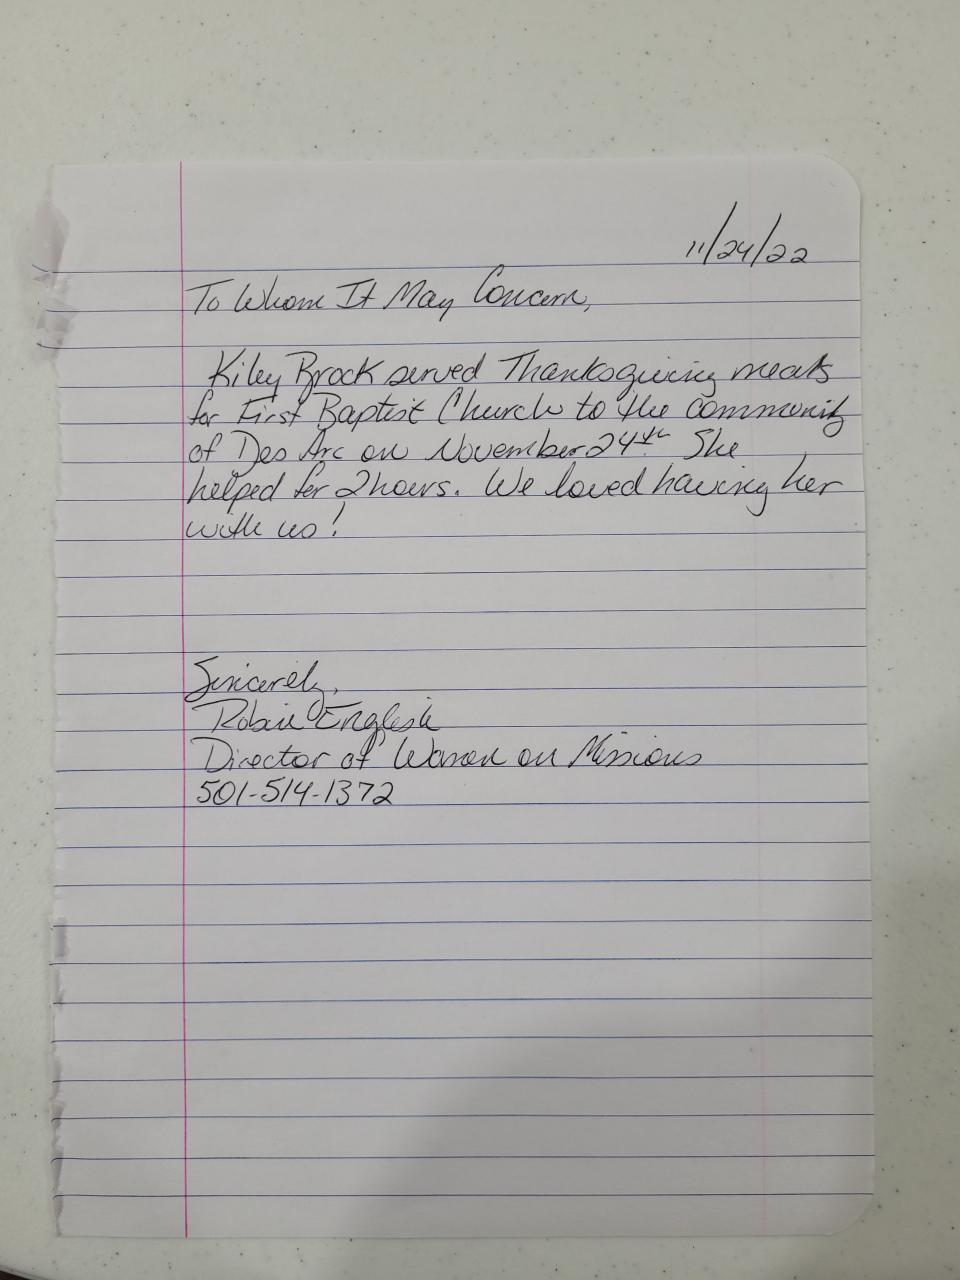 11/24/22
To Whom It May Concern,
Kiley Brock served Thanksgiving meals
for First Baptist Church to the community
of Des Arc on November 24th. She
helped for 2 hours. We loved having her
with us!
Sincerely,
Robin English
Director of Women on Missions
501-514-1372